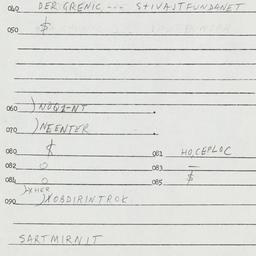 040 DER GRENIC, --- S+IVAJTFUNDANET
050 $
060 )NOQ1-NT
070 )NEENTER
080 $ 081 HO,CEPLOC
082 0 083 —
084 0 085 $
)XHER
090 )XOBDIRINTROK
SARTMIRNIT